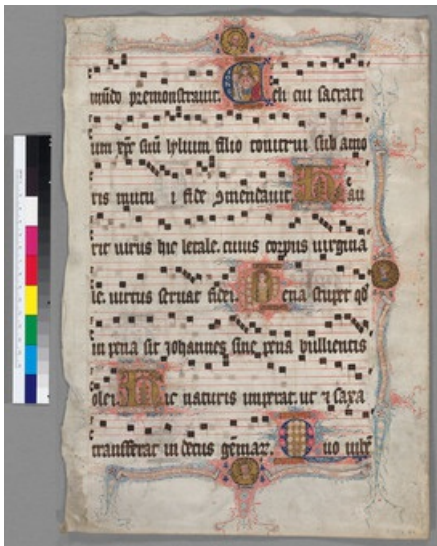 mūdo premonstrauit. Celi cui sacrari
um xp̄c suū lylium filio sub amo
ris mutui fide ꝯmendauit. Hau
rit uirus hic letale. cuius corpus uirgina
le. uirtus seruat fidei. Pena stupet qd̄
in pena sit Johannes sine pena bullientis
olei. Hic naturis imperat. ut ⁊ saxa
transferat in decus gēmaꝝ. Quo iubē